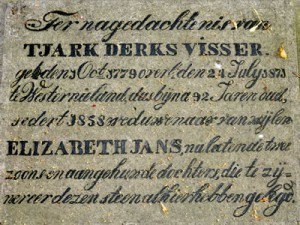 Ter nagedachtenis van
TJARK DERKS VISSER.
geb. den 3 Oct. 1779 overl. den 24 July 1871
te Westernieland, dus bijna 92 Jaren oud,
sedert 1858 weduwenaar van wijlen
ELIZABETH JANS, nalatende twee
zoons en aangehuwde dochters, die te zij-
ner eer dezen steen alhier hebben gelegd.